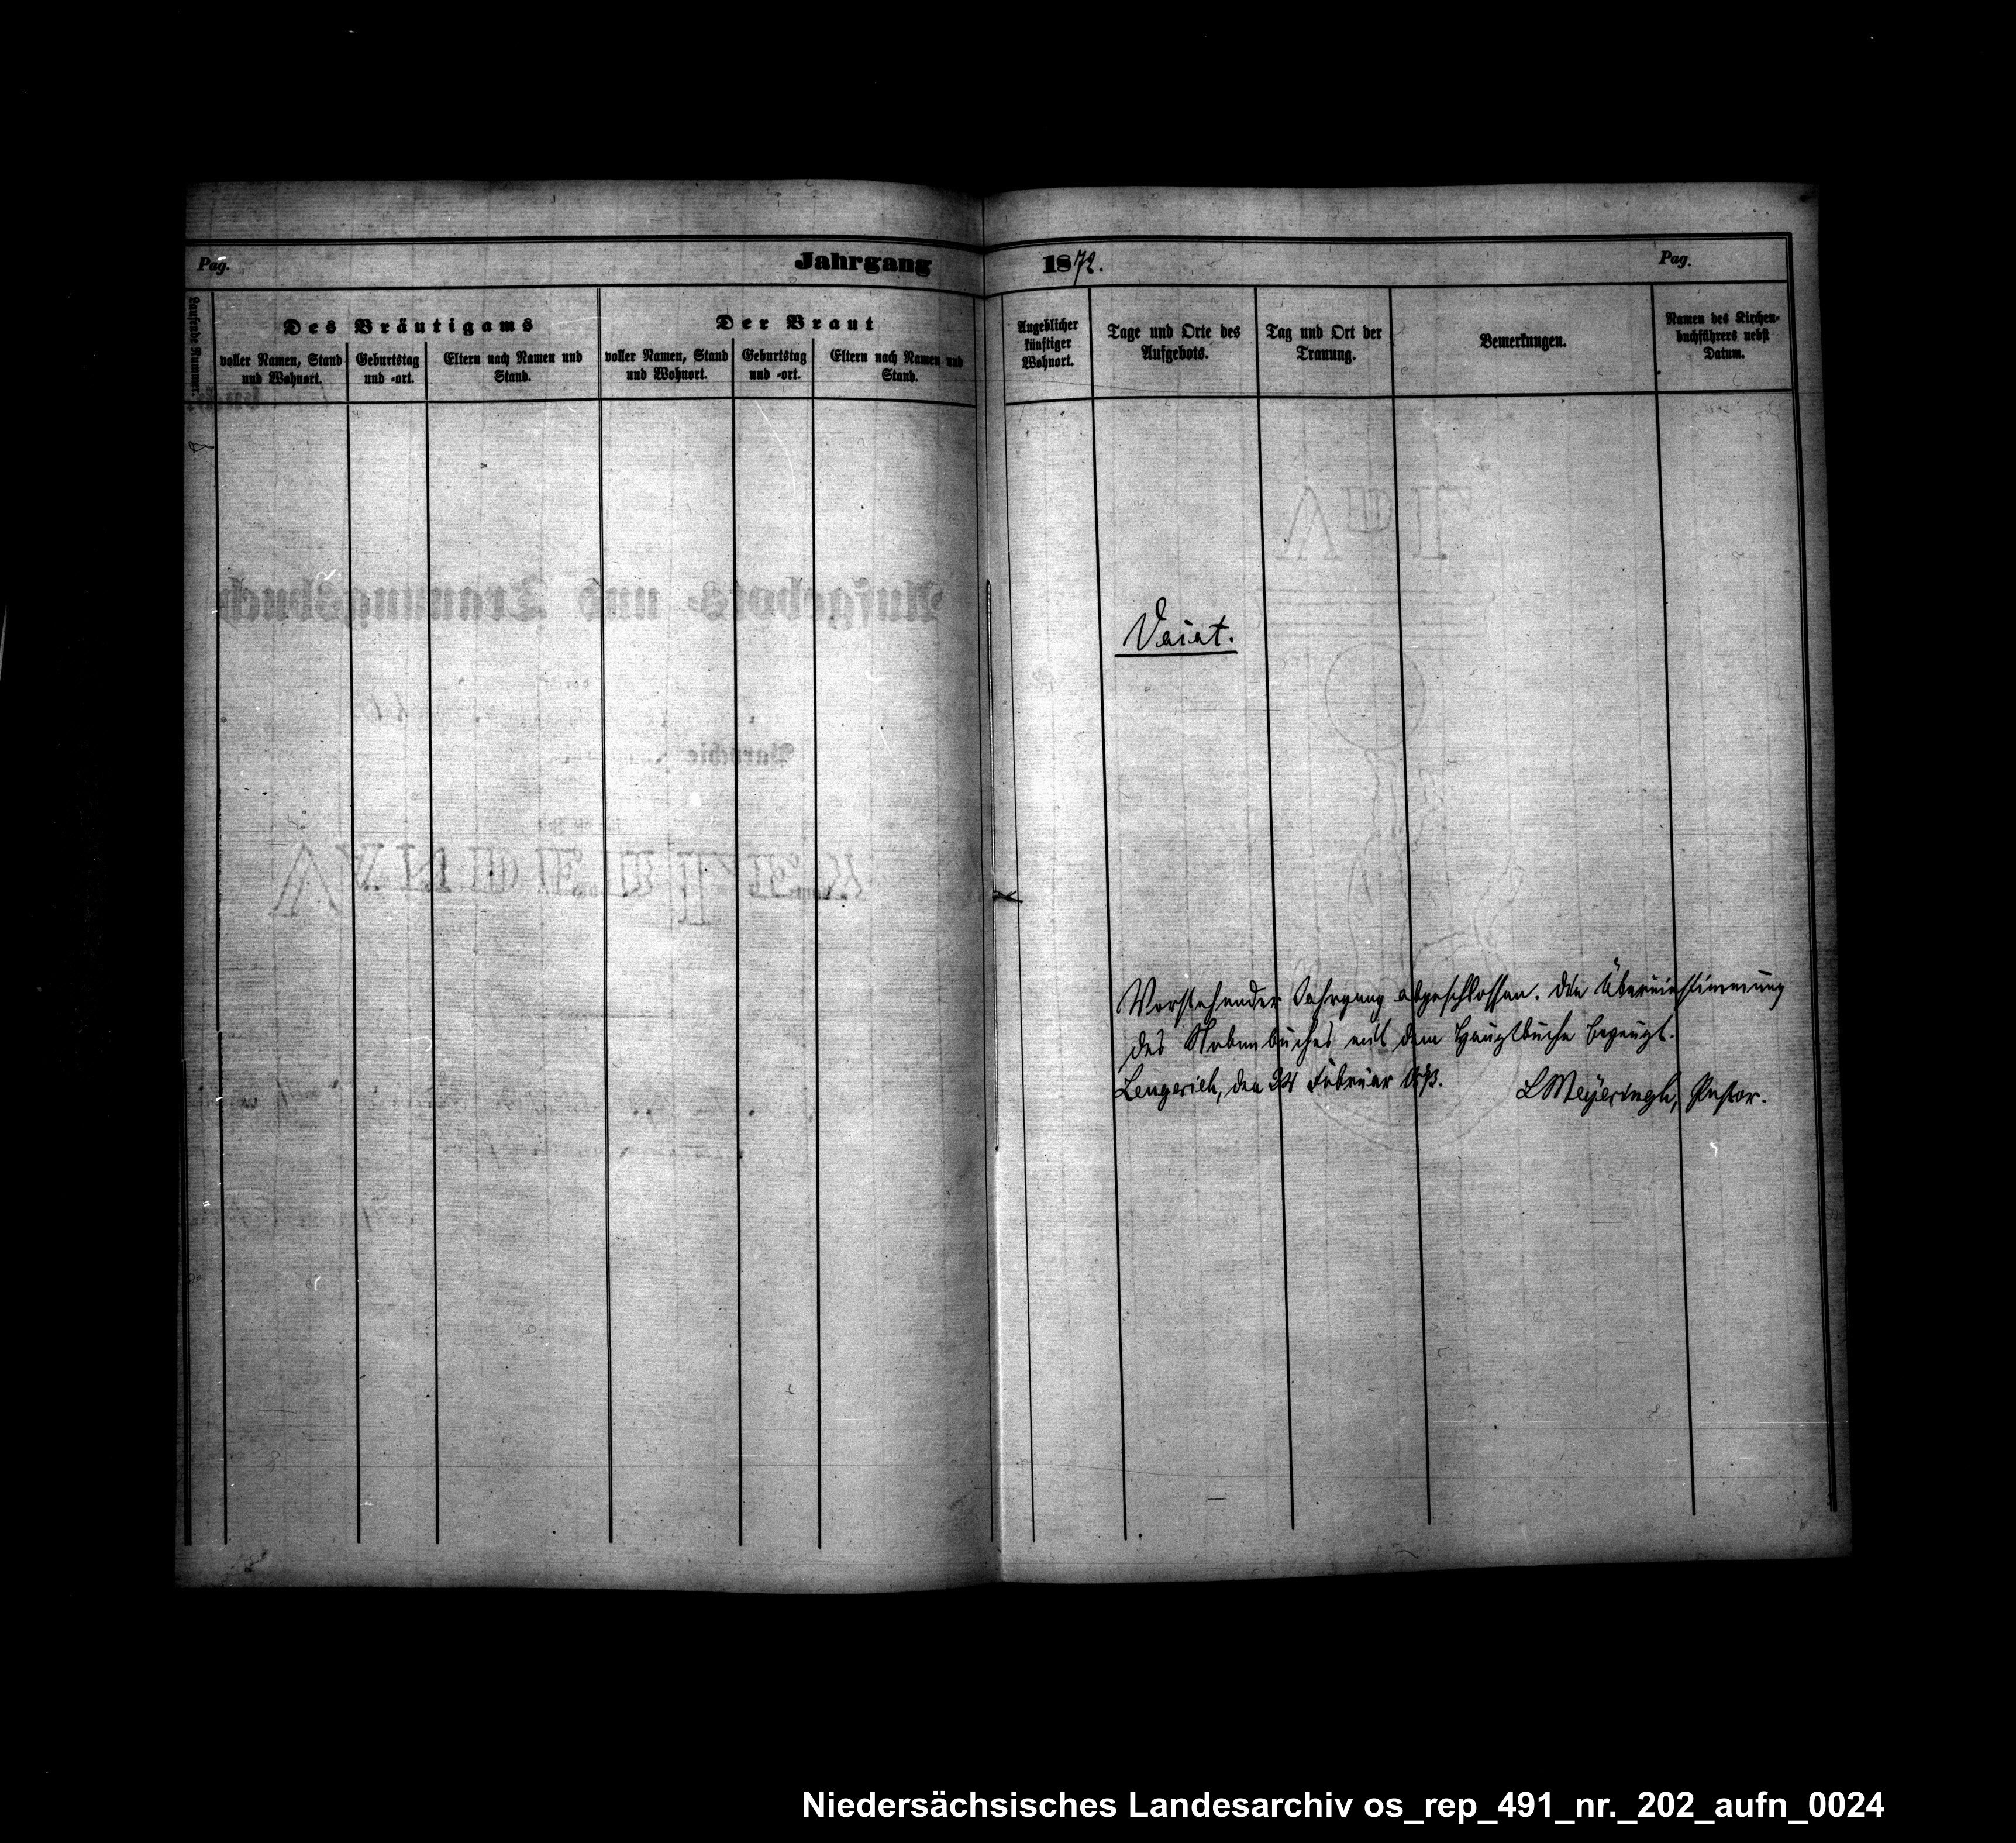 Pag.
Jahrgang 1872.
Pag.
Laufende Nummer.
Des Bräutigams
Der Braut
voller Namen, Stand
und Wohnort.
Geburtstag
und -ort.
Eltern nach Namen und
Stand.
voller Namen, Stand
und Wohnort.
Geburtstag
und -ort.
Eltern nach Namen und
Stand.
Angeblicher
künftiger
Wohnort.
Tage und Orte des
Aufgebots.
Tag und Ort der
Trauung.
Bemerkungen.
Namen des Kirchen-
buchführers nebst
Datum.
Aufgebots- und Trauungsbuch
Parochie
Vacat.
Vorstehender Jahrgang abgeschlossen. Die Übereinstimmung
des Nebenbuches mit dem Hauptbuche bezeugt.
Lengerich, den 24 Februar
LMeyeringh, Pastor.
Niedersächsisches Landesarchiv os_rep_491_nr._202_aufn_0024